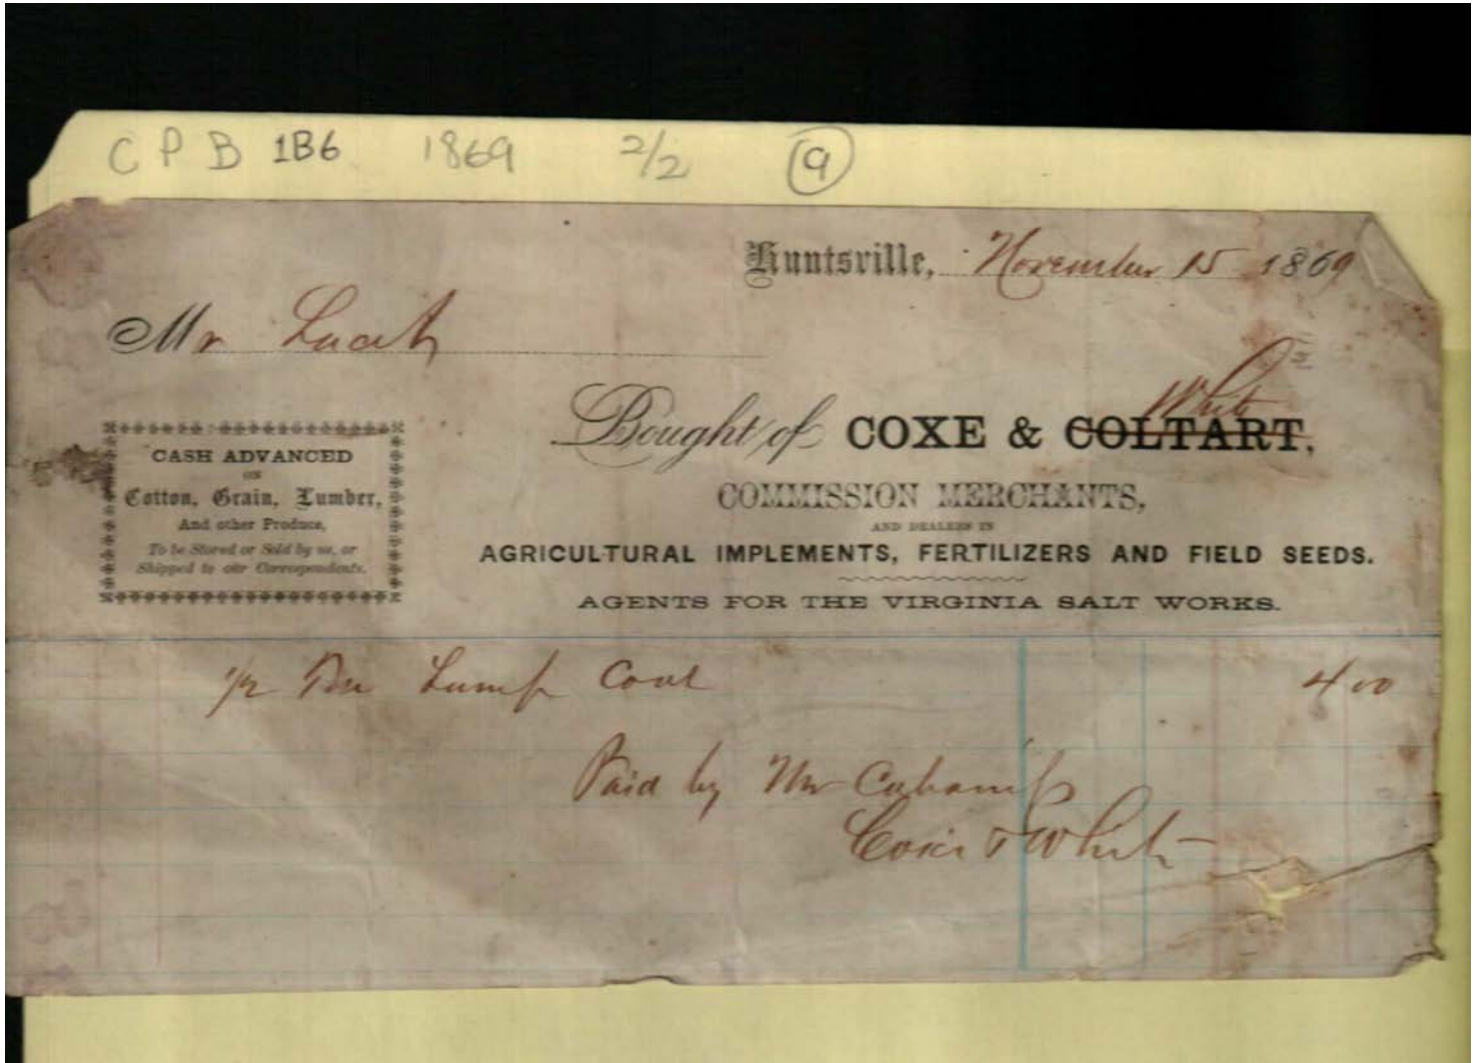 C P B 1B6 1869 2/2 9
Huntsville, November 15 1869
Mr
White
Bought of COXE & COLTART,
CASH ADVANCED
ON
Cotton, Grain, Lumber,
And other Produce,
To be Stored or Sold by us, or
Shipped to our Correspondents.
COMMISSION MERCHANTS,
AND DEALERS IN
AGRICULTURAL IMPLEMENTS, FERTILIZERS AND FIELD SEEDS.
AGENTS FOR THE VIRGINIA SALT WORKS.
1/2 Ton Lump Coal 4 00
Paid by Mr Cabaniss
Coxe & White